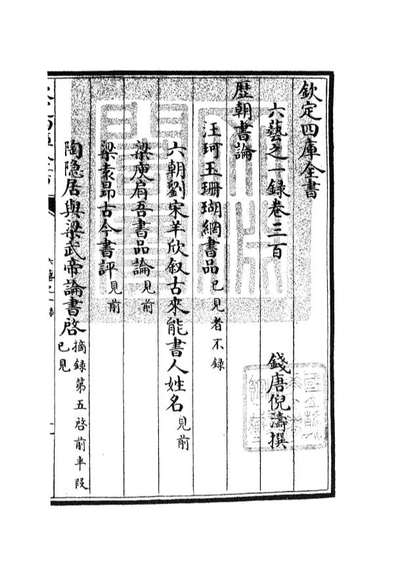 欽定四庫全書
六藝之一錄卷三百
錢唐倪濤撰
歷朝書論
汪珂玉珊瑚網書品已見者不錄
六朝劉宋羊欣叙古來能書人姓名見前
梁庾肩吾書品論見前
梁袁昂古今書評見前
陶隐居與梁武帝論書啓摘錄第五啓前半段已見